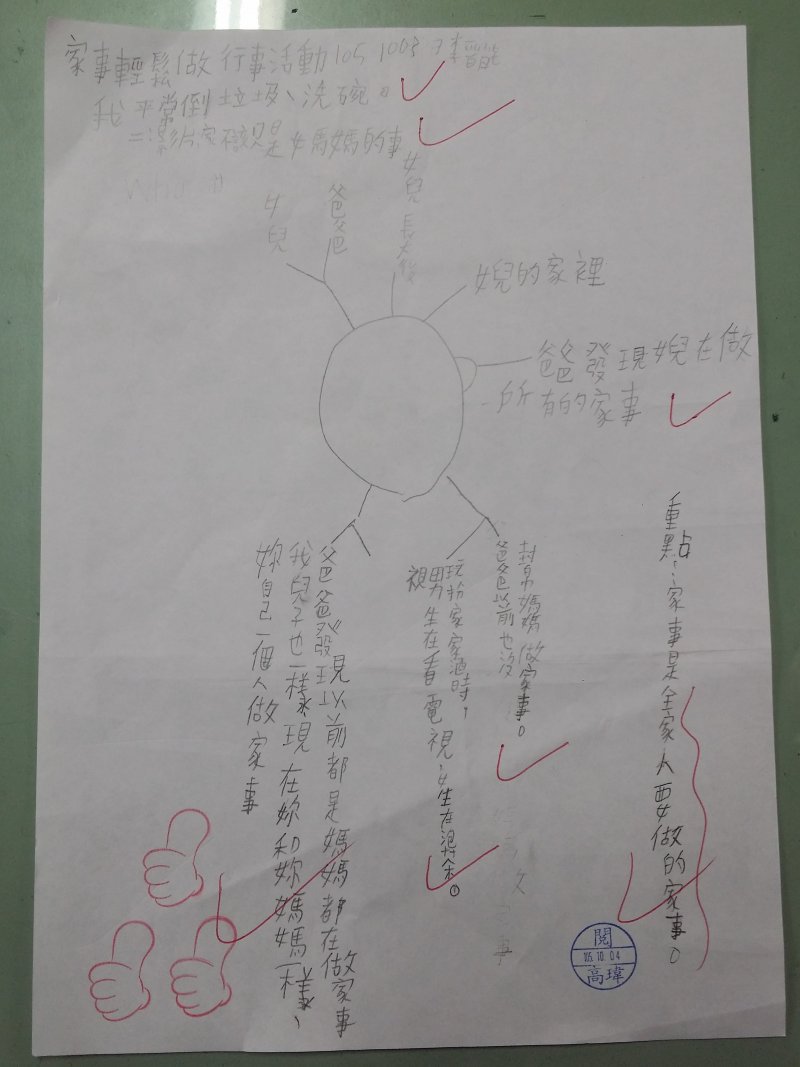 家事輕鬆做 行事活動105 1003
我平常倒垃圾、洗碗。
是媽媽的事
女兒
爸爸
女兒長大後
女兒的家裡
爸爸發現女兒在做
所有的家事
重點:家事是全家人要做的家事。
封帛媽媽做家事。
爸爸以前也沒
玩扮家家酒時,
男生在看電視,女生在湯余。
視
爸爸發現以前都是媽媽都在做家事
我兒子也一樣現在妳和妳媽媽一樣、
妳自己一個人做家事
閱
05.10.04
高瑋